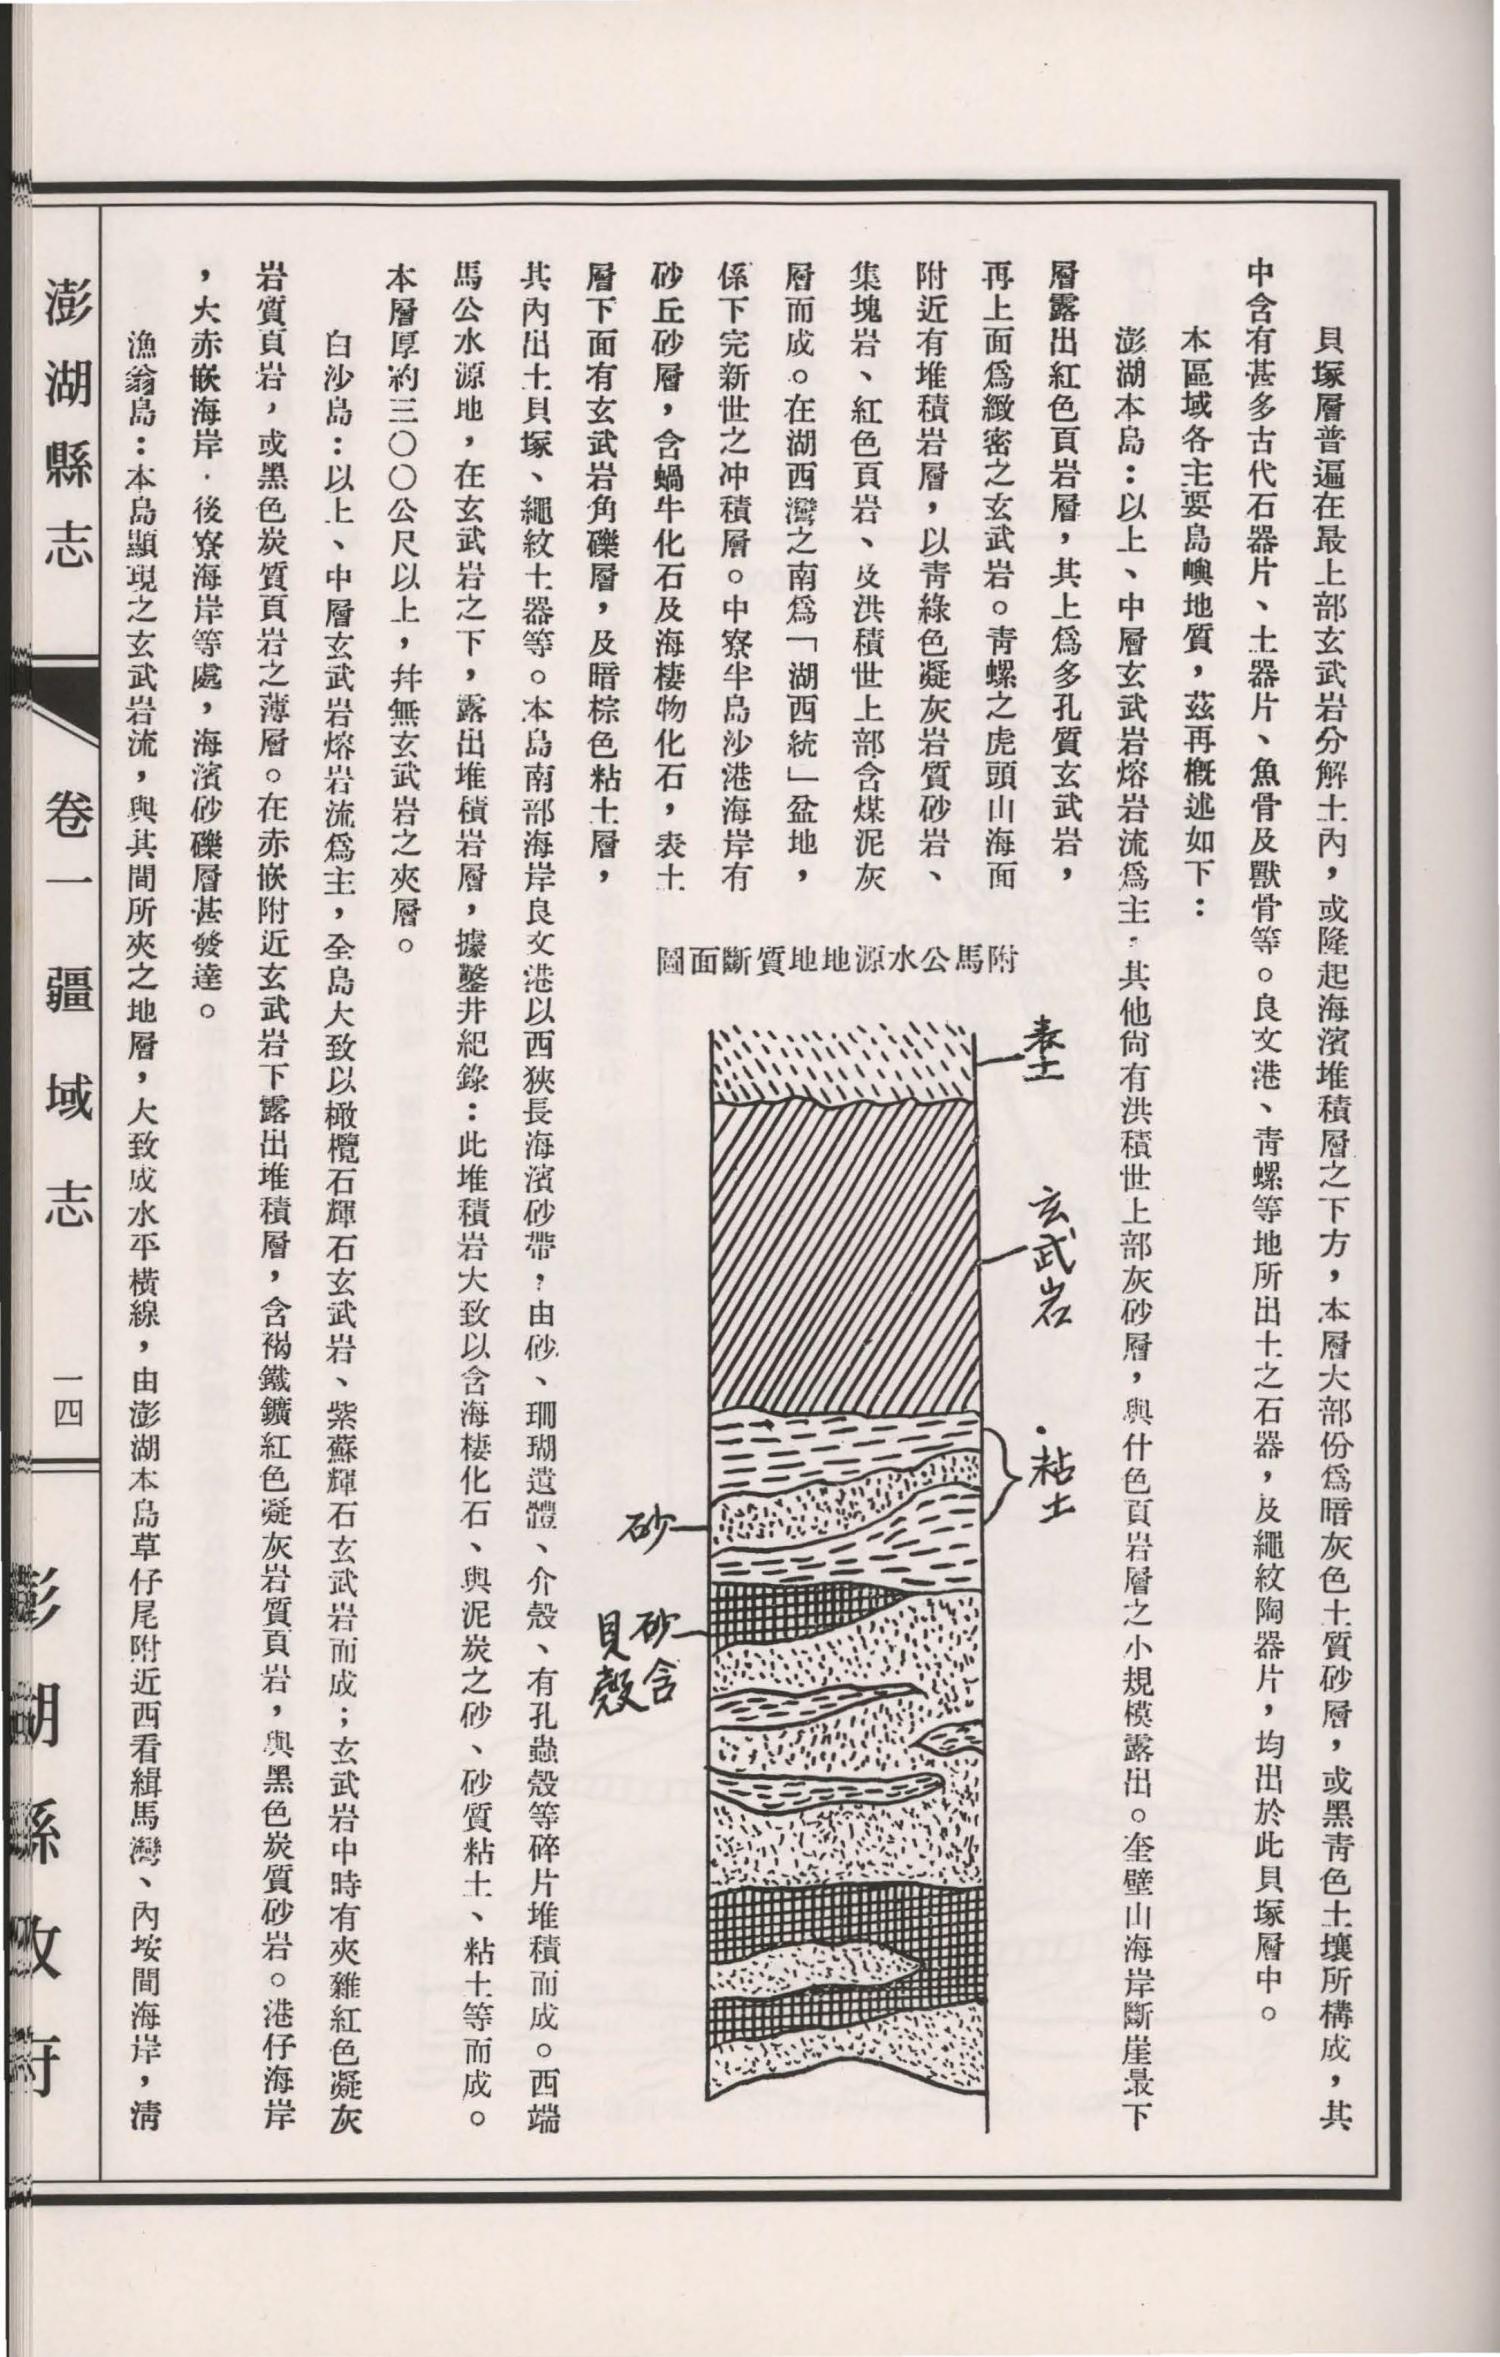 貝塚層普遍在最上部玄武岩分解土內，或隆起海濱堆積層之下方，本層大部份爲暗灰色土質砂層，或黑青色土壤所構成，其
中含有甚多古代石器片、土器片、魚骨及獸骨等。良文港、青螺等地所出土之石器，及繩紋陶器片，均出於此貝塚層中。
本區域各主要島嶼地質，茲再槪述如下：
澎湖本島：以上、中層玄武岩熔岩流爲主，其他尙有洪積世上部灰砂層，與什色頁岩層之小規模露出。奎壁山海岸斷崖最下
層露出紅色頁岩層，其上爲多孔質玄武岩，
再上面爲緻密之玄武岩。青螺之虎頭山海面
附近有堆積岩層，以靑綠色凝灰岩質砂岩、
集塊岩、紅色頁岩、及洪積世上部含煤泥灰
層而成。在湖西灣之南爲「湖西統」盆地，
係下完新世之冲積層。中寮半島沙港海岸有
砂丘砂層，含蝸牛化石及海棲物化石，表土
層下面有玄武岩角礫層，及暗棕色粘土層，
其內出土貝塚、繩紋土器等。本島南部海岸良文港以西狹長海濱砂帶，由砂、珊瑚遺體、介殼、有孔蟲殼等碎片堆積而成。西端
馬公水源地，在玄武岩之下，露出堆積岩層，據鑿井紀錄：此堆積岩大致以含海棲化石、與泥炭之砂、砂質粘土、粘土等而成。
本層厚約三〇〇公尺以上，幷無玄武岩之夾層。
白沙島：以上、中層玄武岩熔岩流爲主，全島大致以橄欖石輝石玄武岩、紫蘇輝石玄武岩而成；玄武岩中時有夾雜紅色凝灰
岩質頁岩，或黑色炭質頁岩之薄層。在赤嵌附近玄武岩下露出堆積層，含褐鐵鑛紅色凝灰岩質頁岩，與黑色炭質砂岩。港仔海岸
，大赤嵌海岸．後寮海岸等處，海濱砂礫層甚發達。
漁翁島：本島顯現之玄武岩流，與其間所夾之地層，大致成水平橫線，由澎湖本島草仔尾附近西看緝馬灣、內垵間海岸，淸
附馬公水源地地質斷面圖
表土
玄武岩
粘土
砂
砂含
貝殼
澎湖縣志
卷一疆域志
一四
澎湖縣政府